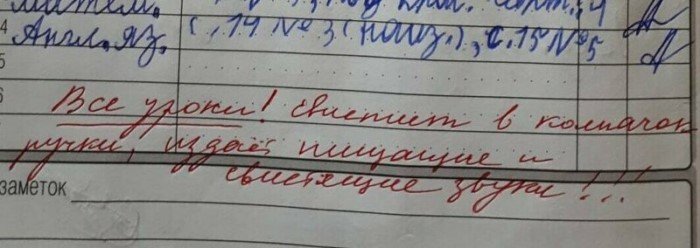 4 Англ. яз. с. 14 № 3 (наиз.), с. 15 № 5
5
6 Все уроки! свистит в колпачок
ручки, издаёт пищащие и
свистящие звуки!!!
заметок